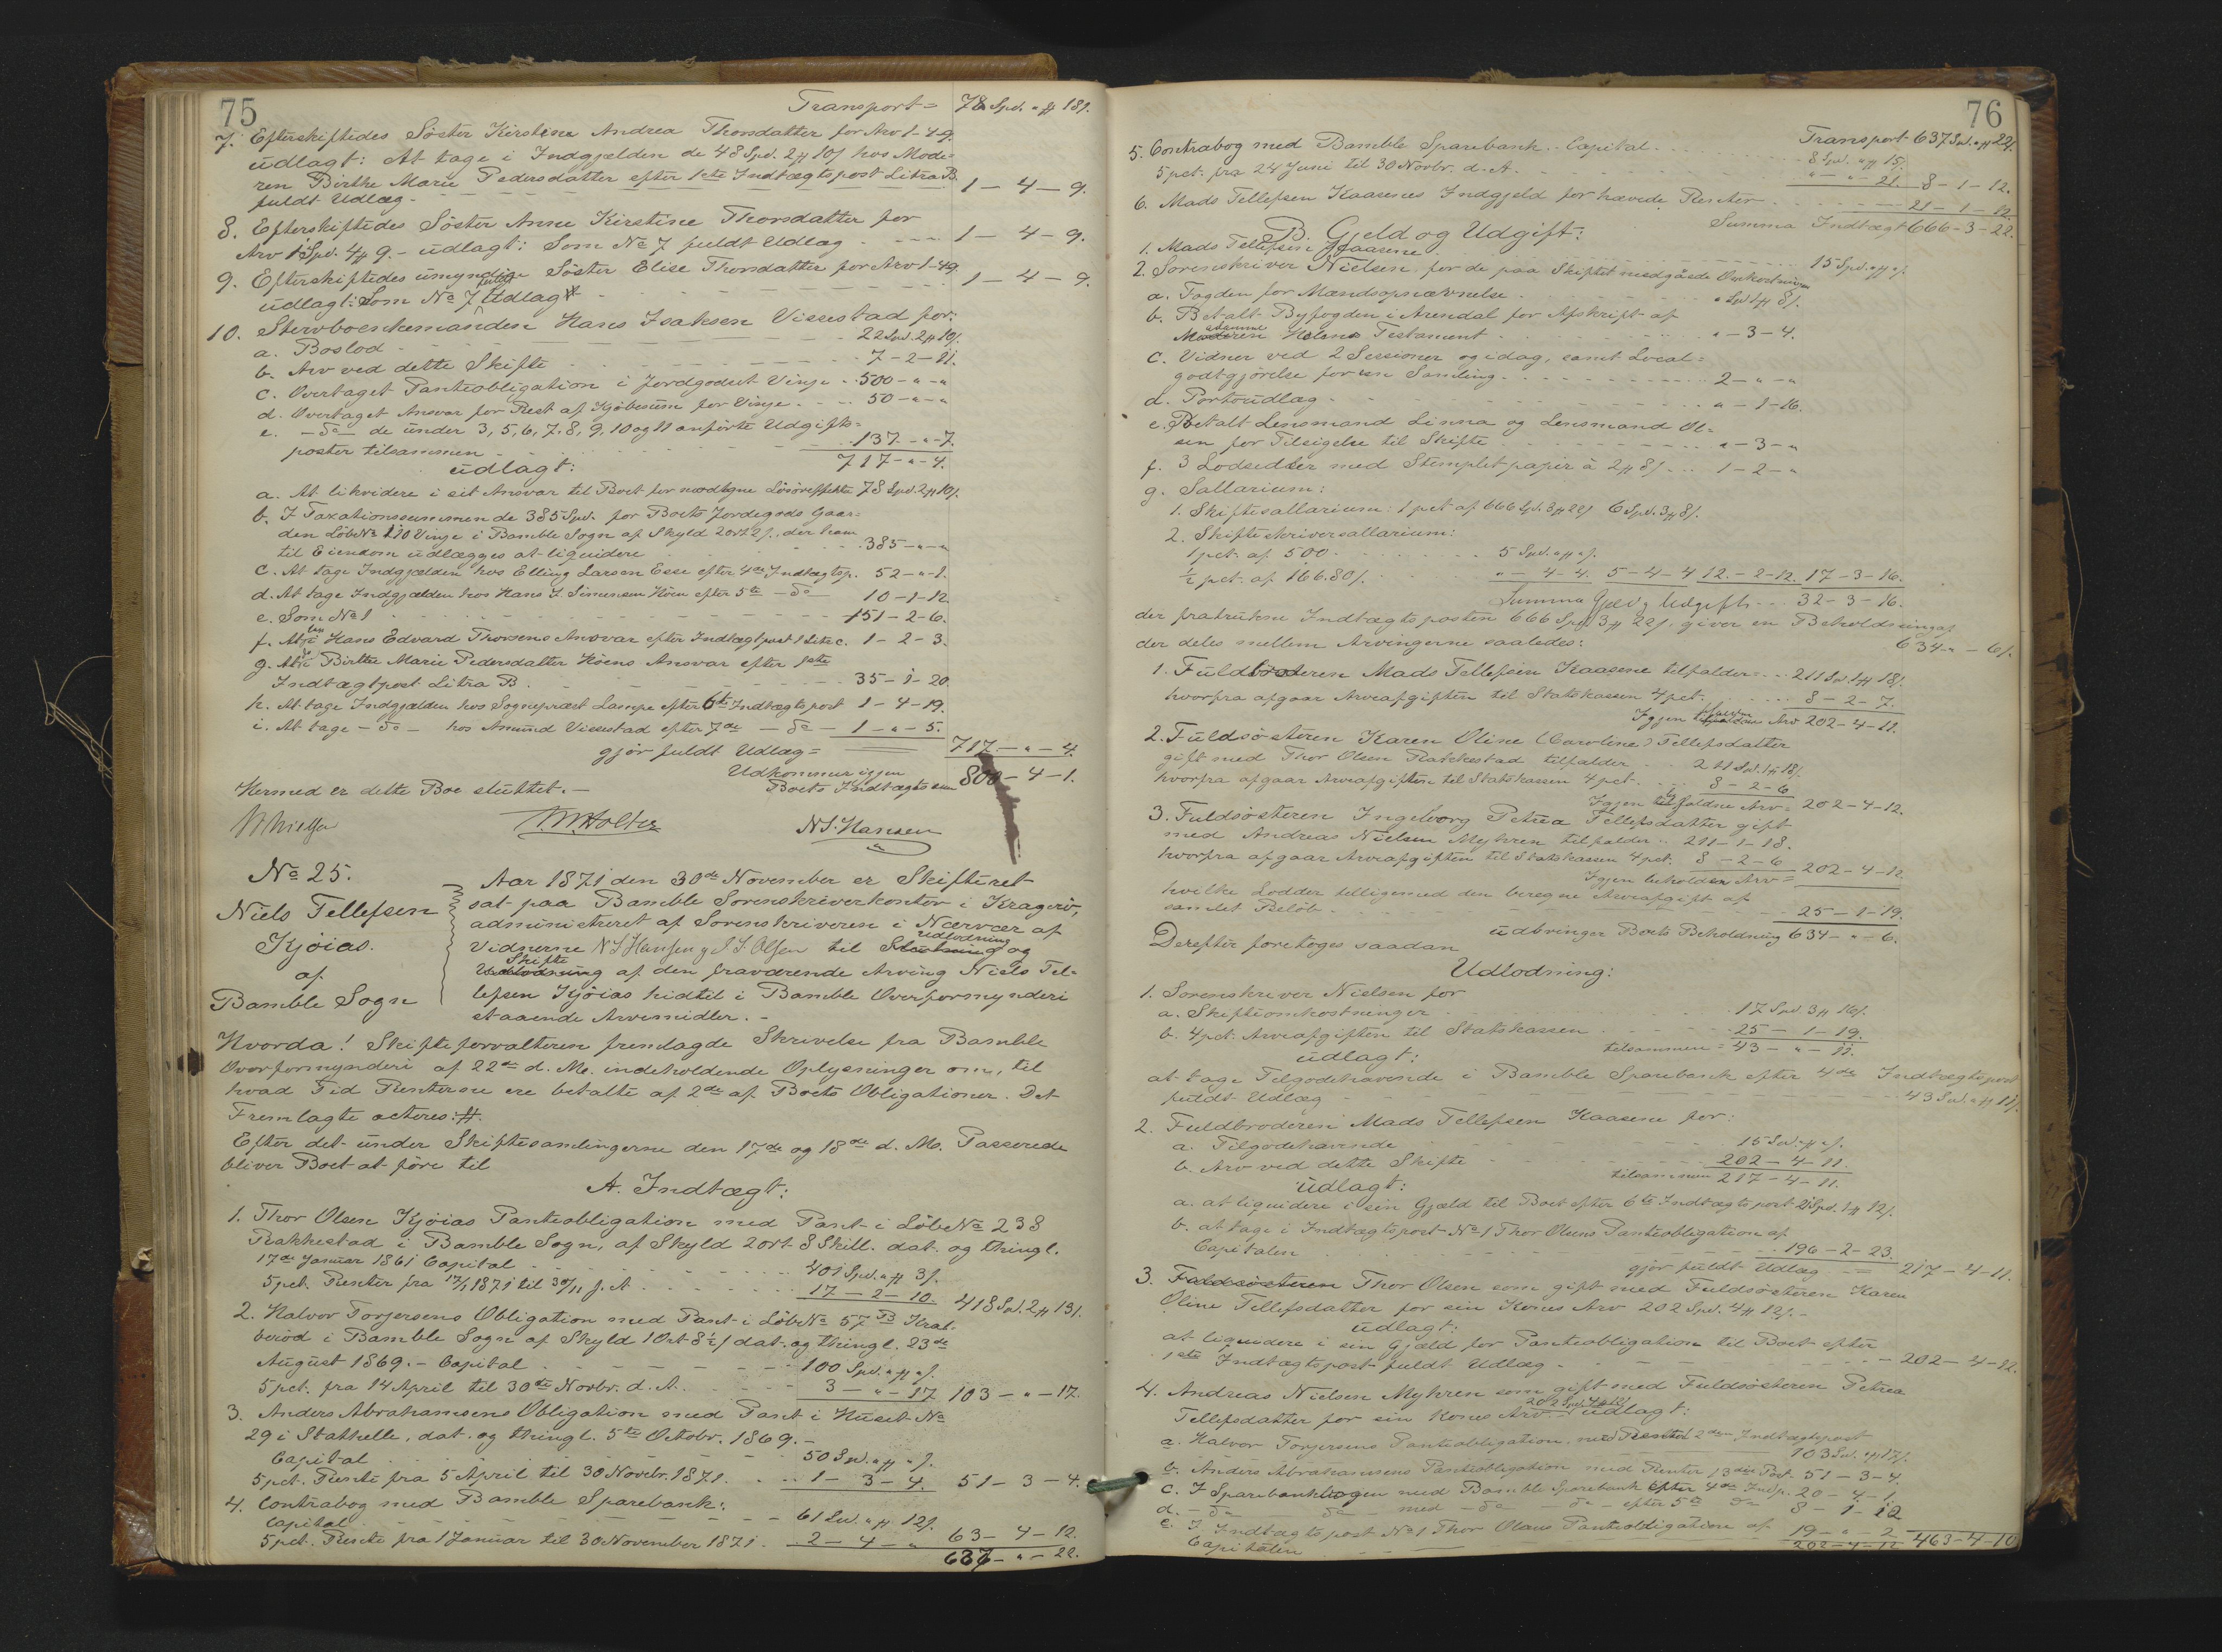 75
Transport = 78 Spd. " # 18/.
7. Efterskiftedes Söster Kirstine Andrea Thorsdatter for Arv 1-4-9.
udlagt: At tage i Indgjælden de 48 Spd. 2 # 10/ hos Mode=
ren Birthe Marie Pedersdatter efter 1ste Indtægtspost Litra B
fuldt Udlæg - 1 - 4 - 9.
8. Efterskiftedes Söster Anne Kirstine Thorsdatter for
Arv 1 Spd. 4 # 9. - udlagt: Som No 7 fuldt Udlæg 1 - 4 - 9.
9. Efterskiftedes umyndige Söster Elise Thorsdatter for Arv 1-4-9
udlagt: Som No 7 fuldt Udlæg 1 - 4 - 9.
10. Stervboenkemanden Hans Isaksen Vissestad for:
a. Boslod 22 Spd. 2 # 10/.
b. Arv ved dette Skifte 7 - 2 - 11.
c. Overtaget Panteobligation i Jordgodset Vinje 500 - " - "
d. Overtaget Ansvar for Rest af Kjöbesum for Vinje 50 - " - "
e. - do - de under 3, 5, 6, 7, 8, 9, 10 og 11 anförte Udgifts=
poster tilsammen 137 - " - 7.
udlagt: 717 - " - 4.
a. At likvidere i sit Ansvar til Boet for modtagne Lösöreffekter 78 Spd. 2 # 10/.
b. I Taxationssummen de 385 Spd. for Boets Jordegods Gaar=
den LöbeNo 110 Vinje i Bamble Sogn af Skyld 2 ort 2/., der ham
til Eiendom udlægges at liquidere 385 - " - "
c. At tage Indgjælden hos Elling Larsen Esse efter 4de Indtægtsp. 52 - " - 1.
d. At tage Indgjælden hos Hans J. Simensen Höen efter 5te - do - 10 - 1 - 12
e. Som No 1 151 - 2 - 6.
f. Hans Edvard Thorsens Ansvar efter Indtægtspost 1 Litr. c. 1 - 2 - 3.
g. Birthe Marie Pedersdatter Höens Ansvar efter 1ste
Indtægtspost Litra B. 35 - 1 - 20
h. At tage Indgjælden hos Sognepræst Lampe efter 6te Indtægtspost 1 - 4 - 19.
i. At tage - do - hos Amund Vissestad efter 7de - do - 1 - " - 5.
gjör fuldt Udlæg = 717 - " - 4.
Udkommer igjen
Boets Indtægtssum 800 - 4 - 1.
Hermed er dette Boe sluttet. -
N. S. Hansen
No 25.
Niels Tellefsen
Kjöias.
af
Bamble Sogn
Aar 1871 den 30de November er Skifteret
sat paa Bamble Sorenskriverkontor i Kragerö,
administreret af Sorenskriveren i Nærvær af
Vidnerne N S Hansen og J. S. Olsen til Slutning udlodning og
Udlodning Skifte af den fraværende Arving Niels Tel=
lefsen Kjöias hidtil i Bamble Overformynderi
staaende Arvemidler. -
Hvorda! Skifteforvalteren fremlagde Skrivelse fra Bamble
Overformynderi af 22de d. M. indeholdende Oplysninger om, til
hvad Tid Renterne ere betalte af 2de af Boets Obligationer. Det
Fremlagte acteres: #.
Efter det under Skiftesamlingerne den 17de og 18de d. M. Passerede
bliver Boet at före til
A. Indtægt:
1. Thor Olsen Kjöias Panteobligation med Pant i LöbeNo 238
Rakkestad i Bamble Sogn, af Skyld 2 ort 8 Skill. dat. og thingl.
17de Januar 1861 Capital 401 Spd. " # 3/.
5 pct. Renter fra 17/1 1871 til 30/11 s. A. 17 - 2 - 10. 418 Spd. 2 # 13/.
2. Halvor Torjersens Obligation med Pant i LöbeNo 57 B Krab=
beröd i Bamble Sogn af Skyld 1 Ort 8½/ dat. og thingl. 23de
August 1869. - Capital 100 Spd. " # "/.
5 pct. fra 14 April til 30te Novbr. d. A. 3 - " - 17 103 - " - 17.
3. Anders Abrahamsens Obligation med Pant i Huset No
29 i Stathelle, dat. og thingl. 5te Octobr. 1869. -
Capital 50 Spd. " # "/.
5 pct. Rente fra 5 April til 30 Novbr. 1871. 1 - 3 - 4. 51 - 3 - 4.
4. Contrabog med Bamble Sparebank:
Capital 61 Spd. " # 12/.
5 pct. Rente fra 1 Januar til 30 November 1871. 2 - 4 - " 63 - 4 - 12.
637 - " - 22.
76
Transport 637 Spd. " # 22/.
5. Contrabog med Bamble Sparebank. Capital 8 Spd. " # 15/.
5 pct. fra 24 Juni til 30 Novbr. d. A. " - " - 21. 8 - 1 - 12.
6. Mads Tellefsen Kaasenes Indgjeld for hævede Renter 21 - 1 - 12.
Summa Indtægt 666 - 3 - 22.
B. Gjeld og Udgift:
1. Mads Tellefsen Kaasene 15 Spd. " # "/.
2. Sorenskriver Nielsen for de paa Skiftet medgåede Omkostninger
a. Fogden for Mandsopnævnelse " Spd 1 # 8/.
b. Betalt Byfogden i Arendal for Afskrift af
Helene Testament " - 3 - 4.
c. Vidner ved 2 Sessioner og idag, samt Local=
godtgjörelse for en Samling 2 - " - "
d. Portoudlæg " - 1 - 16.
e. Betalt Lensmand Linna og Lensmand Ol=
sen for Tilsigelse til Skifte " - 3 - "
f. 3 Lodsedler med Stemplet papir à 2 # 8/ 1 - 2 - "
g. Sallarium:
1. Skiftesallarium: 1 pct af 666 Spd. 3 # 22/ 6 Spd. 3 # 8/.
2. Skifteskriversallarium:
1 pct. af 500 5 Spd. " # "/.
½ pct. af 166.80/. " - 4 - 4. 5 - 4 - 4 12. - 2 - 12. 17 - 3 - 16.
Summa Gjeld og Udgift 32 - 3 - 16.
der fratrukken Indtægtsposten 666 Spd 3 # 22/. giver en Beholdning af
634 " - 6/.
der deles mellem Arvingerne saaledes:
1. Fuldbroderen Mads Tellefsen Kaasene tilfalder 211 Spd. 1 # 18/.
hvorfra afgaar Arveafgiften til Statskassen 4 pct. 8 - 2 - 7.
Igjen Arv 202 - 4 - 11.
2. Fuldsösteren Karen Oline (Caroline) Tellefsdatter
gift med Thor Olsen Rakkestad tilfalder 211 Spd. 1 # 18/.
hvorfra afgaar Arveafgiften til Statskassen 4 pct. 8 - 2 - 6
Igjen tilfalden Arv = 202 - 4 - 12.
3. Fuldsösteren Ingeborg Petrea Tellefsdatter gift
med Andreas Nielsen Myhren tilfalder 211 - 1 - 18.
hvorfra afgaar Arveafgiften til Statskassen 4 pct. 8 - 2 - 6
Igjen beholden Arv = 202 - 4 - 12
hvilke Lodder tilligemed den beregne Arveafgift af
samlet Belöb 25 - 1 - 19.
udbringer Boets Beholdning 634 - " - 6.
Derefter foretoges saadan
Udlodning:
1. Sorenskriver Nielsen for
a. Skifteomkostninger 17 Spd 3 # 16/.
b. 4 pct. Arveafgiften til Statskassen 25 - 1 - 19.
tilsammen = 43 - " - 11.
udlagt:
at tage Tilgodehavende i Bamble Sparebank efter 4de Indtægtspost
fuldt Udlæg 43 Spd. " # 11/.
2. Fuldbroderen Mads Tellefsen Kaasene for:
a. Tilgodehavende 15 Spd. " # "/.
b. Arv ved dette Skifte 202 - 4 - 11.
tilsammen 217 - 4 - 11.
udlagt:
a. at liquidere i sin Gjæld til Boet efter 6te Indtægtspost 21 Spd. 1 # 12/.
b. at tage i Indtægtspost No 1 Thor Olsens Panteobligation af
Capitalen 196 - 2 - 23.
gjör fuldt Udlæg = 217 - 4 - 11.
3. Fuldsösteren Thor Olsen som gift med Fuldsösteren Karen
Oline Tellefsdatter for sin Kones Arv 202 Spd. 4 # 12/. -
udlagt:
at liquidere i sin Gjæld for Panteobligation til Boet efter
1ste Indtægtspost fuldt Udlæg 202 - 4 - 12.
4. Andreas Nielsen Myhren som gift med Fuldsösteren Petrea
Tellefsdatter for sin Kones Arv 202 Spd. 4 # 12 udlagt:
a. Halvor Torjersens Panteobligation med Renter 2den Indtægtspost
103 Spd. " # 17/.
b. Anders Abrahamsens Panteobligation med Renter 3die Post. 51 - 3 - 4.
c. I Sparebankbogen med Bamble Sparebank efter 4de Indtp. 20 - 4 - 1.
d. - do - do - med - do - do - efter 5te do 8 - 1 - 12
e. I Indtægtspost No 1 Thor Olsens Panteobligation af
Capitalen 19 - " - 2
202 - 4 - 12 463 - 4 - 10